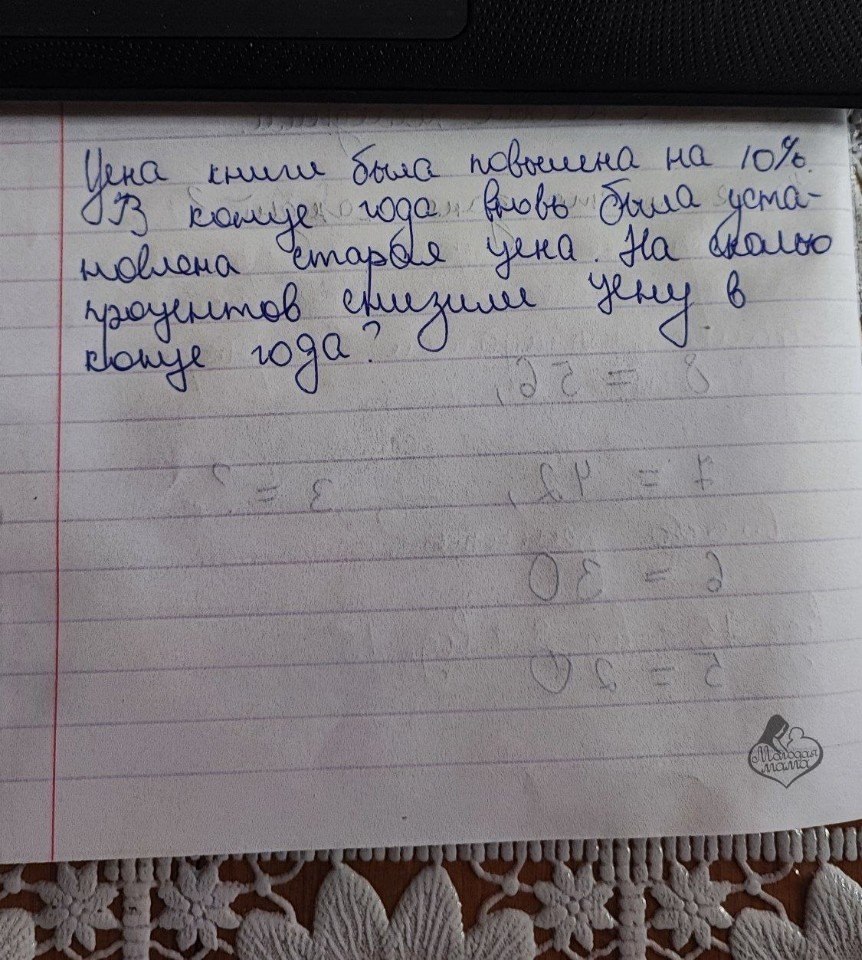 Цена книги была повышена на 10%.
В конце года вновь была уста-
новлена старая цена. На сколько
процентов снизили цену в
конце года?
8 = 56,
7 = 42,
3 = ?
6 = 30
5 = 20
Молодая
мама